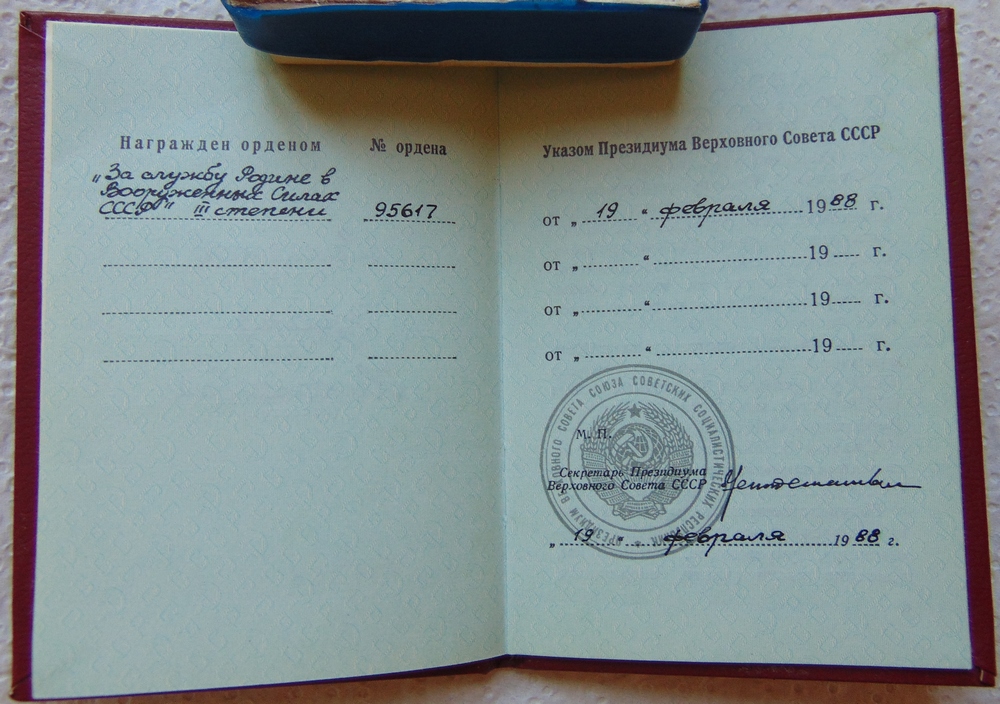 Награжден орденом № ордена
„За службу Родине в
Вооруженных Силах
СССР“ III степени 95617
Указом Президиума Верховного Совета СССР
от „ 19 “ февраля 1988 г.
от „ “ 19 г.
от „ “ 19 г.
от „ “ 19 г.
ПРЕЗИДИУМ ВЕРХОВНОГО СОВЕТА СОЮЗА СОВЕТСКИХ СОЦИАЛИСТИЧЕСКИХ РЕСПУБЛИК
М. П.
Секретарь Президиума
Верховного Совета СССР
„ 19 “ февраля 1988 г.